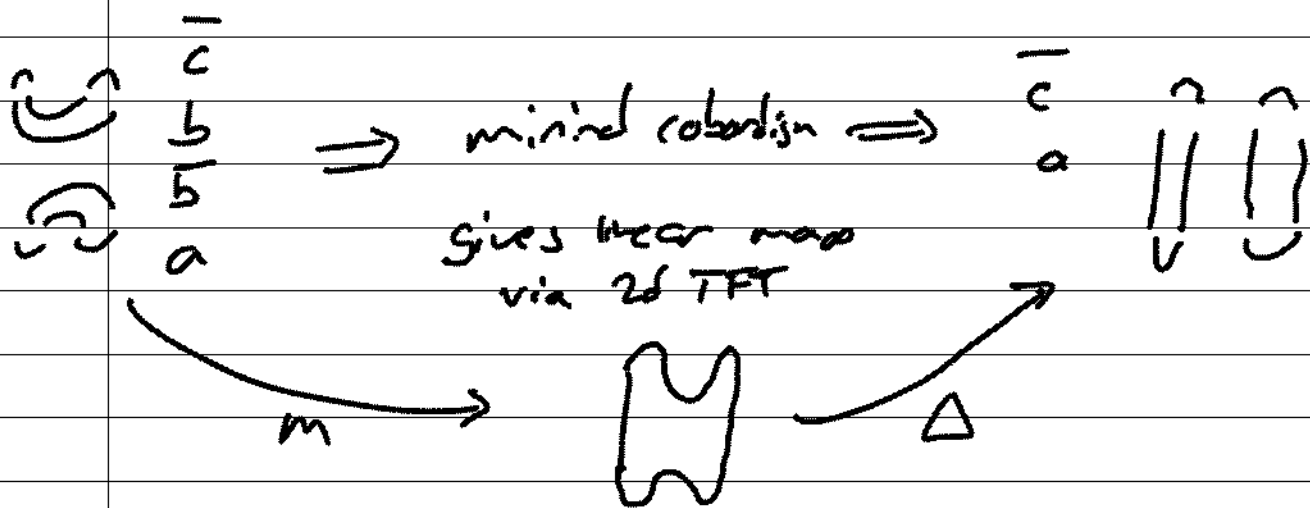 c̅
b ⇒ minimal cobordism ⇒ c̅
b̅ a
a gives linear map
via 2d TFT
m Δ